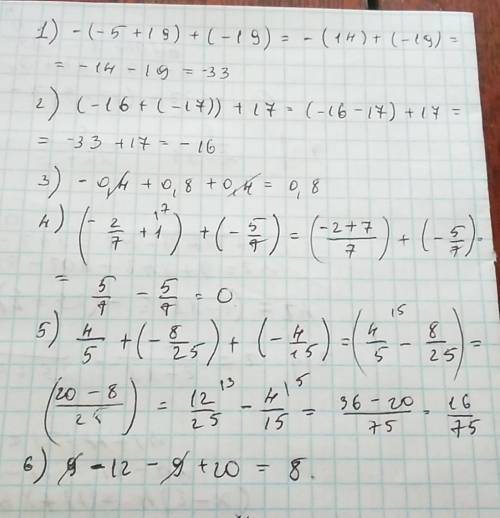 1) -(-5+19)+(-19) = -(14)+(-19) =
= -14-19 = -33
2) (-16+(-17))+17 = (-16-17)+17 =
= -33+17 = -16
3) -0,4+0,8+0,4 = 0,8
4) (-2/7+1^{17})+(-5/7) = ((-2+7)/7)+(-5/7) =
= 5/7-5/7 = 0
5) 4/5+(-8/25)+(-4/15) = (4/5^{15}-8/25) =
((20-8)/25) = 12/25^{13}-4/15^{15} = (36-20)/75 = 16/75
6) 9-12-9+20 = 8.